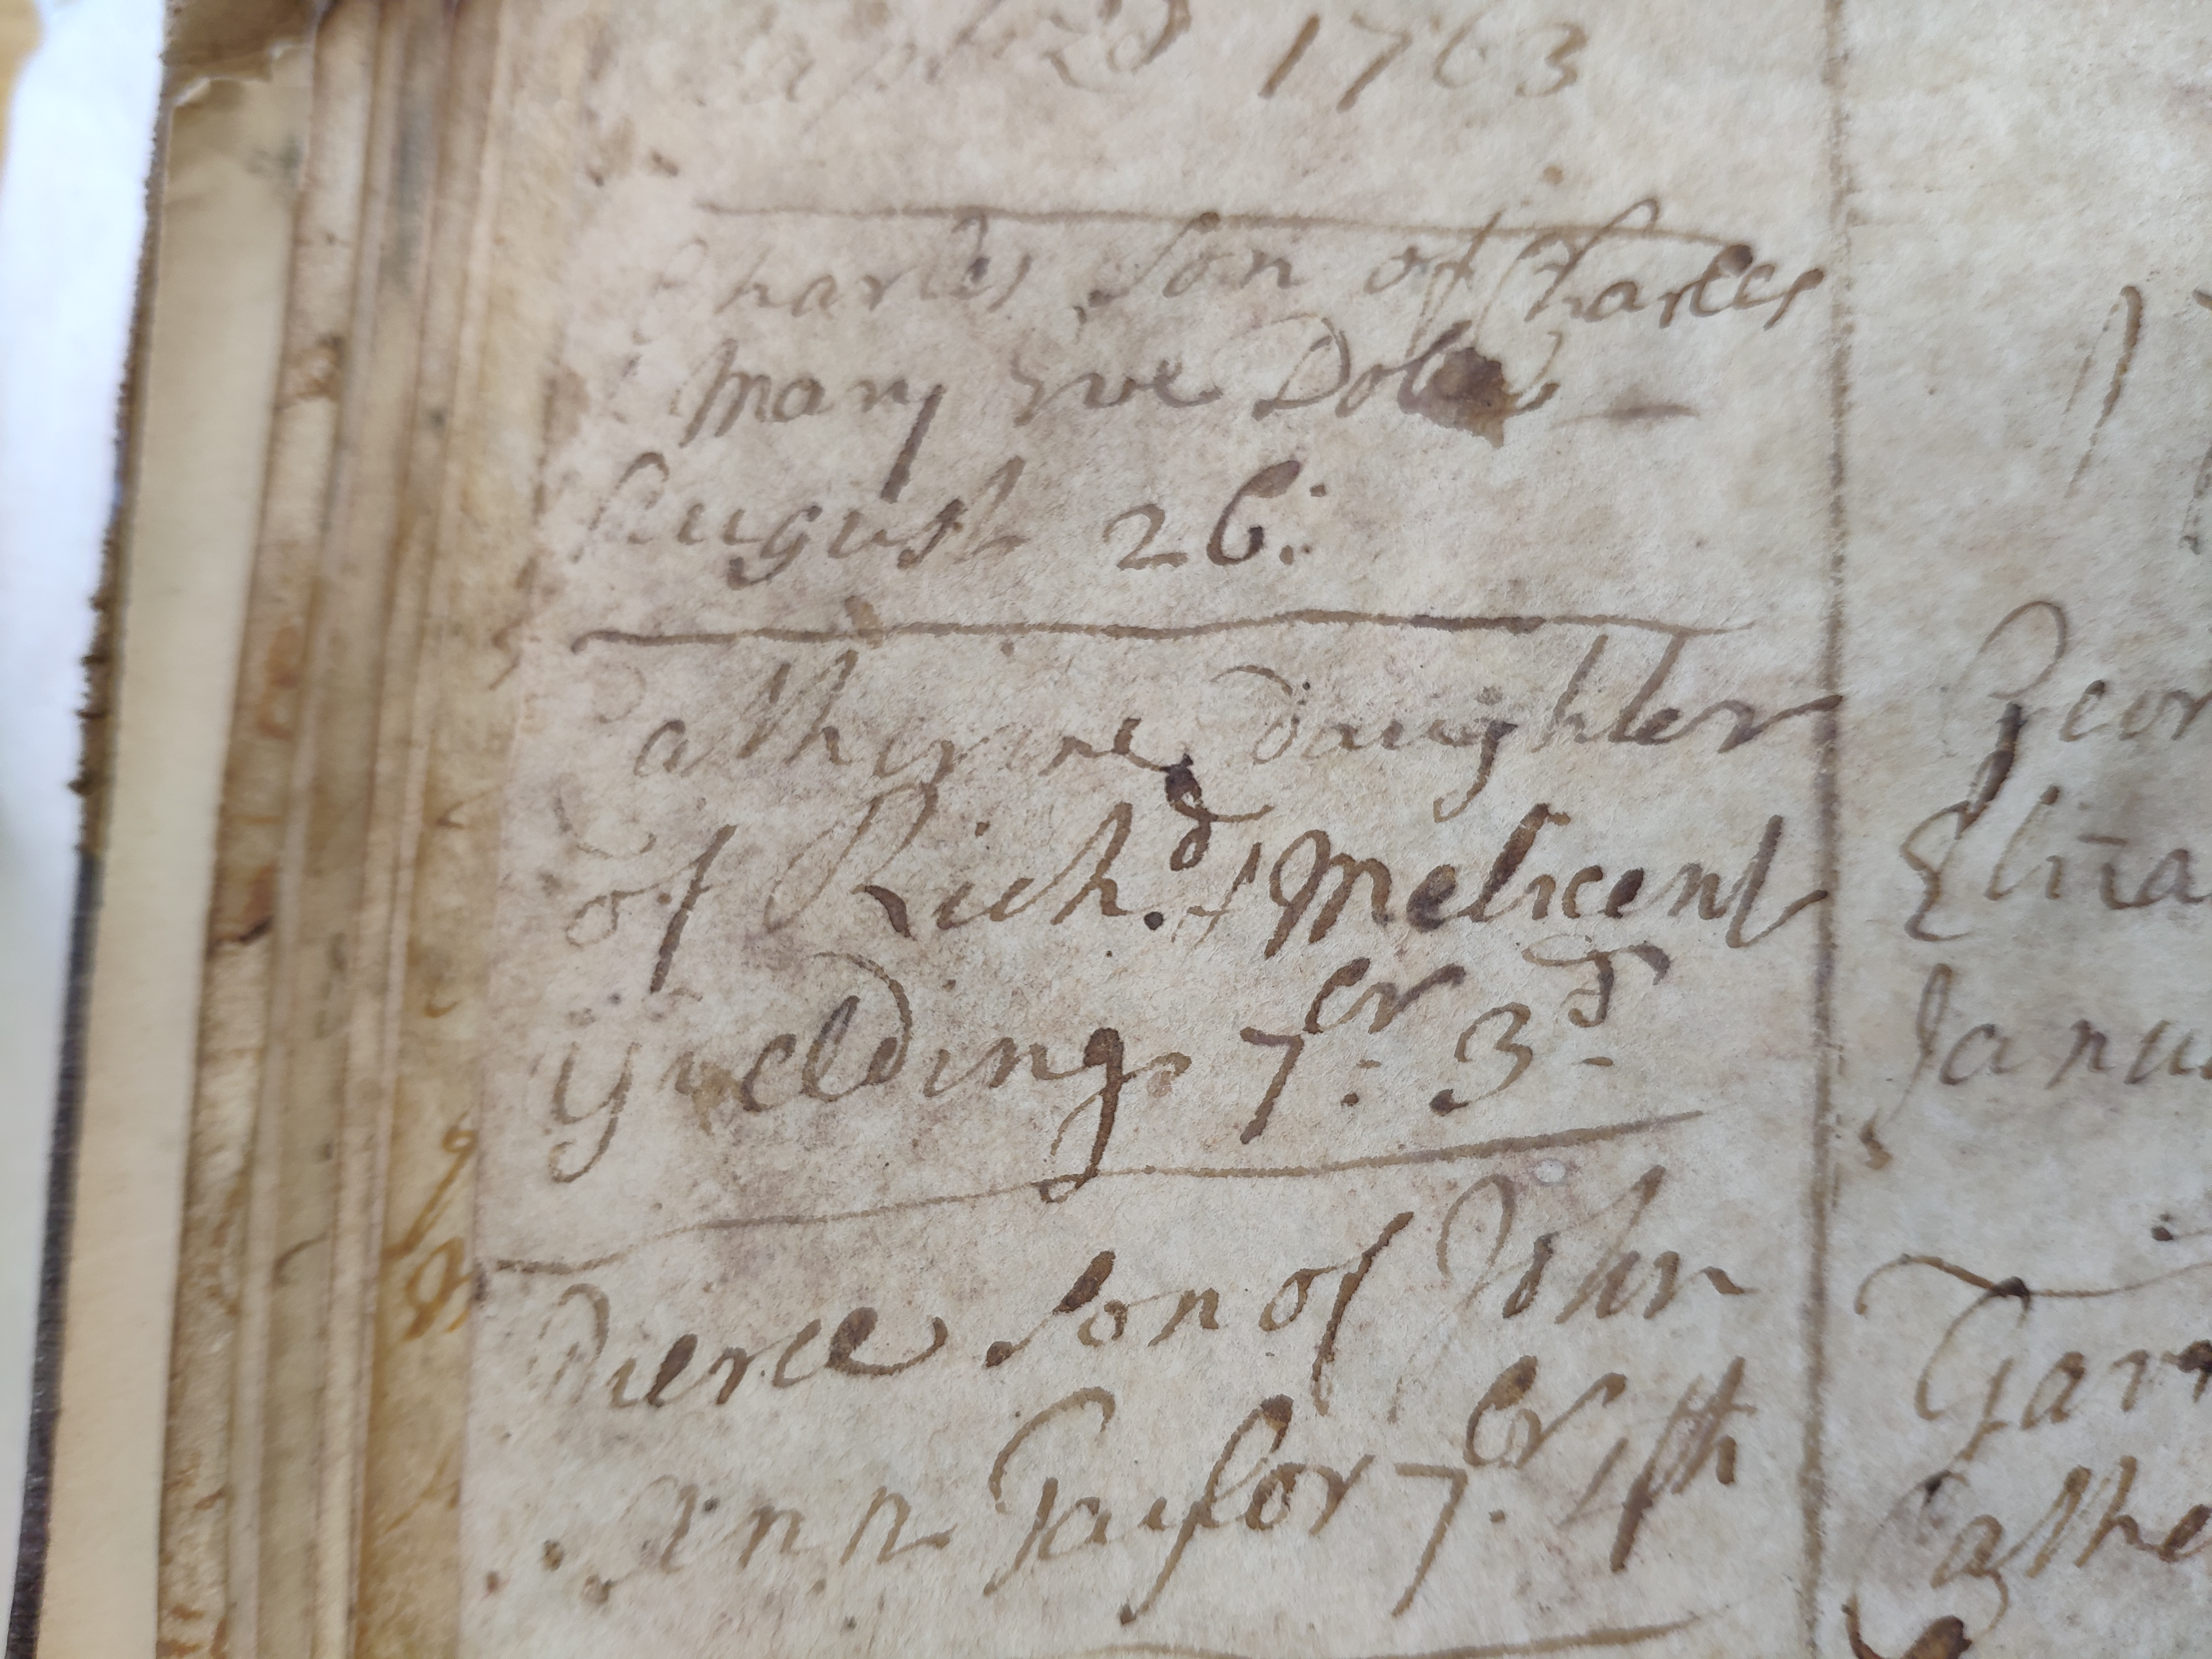 1763
Charles Son of Charles
Mary Eve
August 26:
Catherine Daughter
of Rich.d & Melicent
Yielding 7er: 3d
Pierce Son of John
Ann Taylor 7.er 4th
Geor
Eliza
Janu
Garr
Cathe